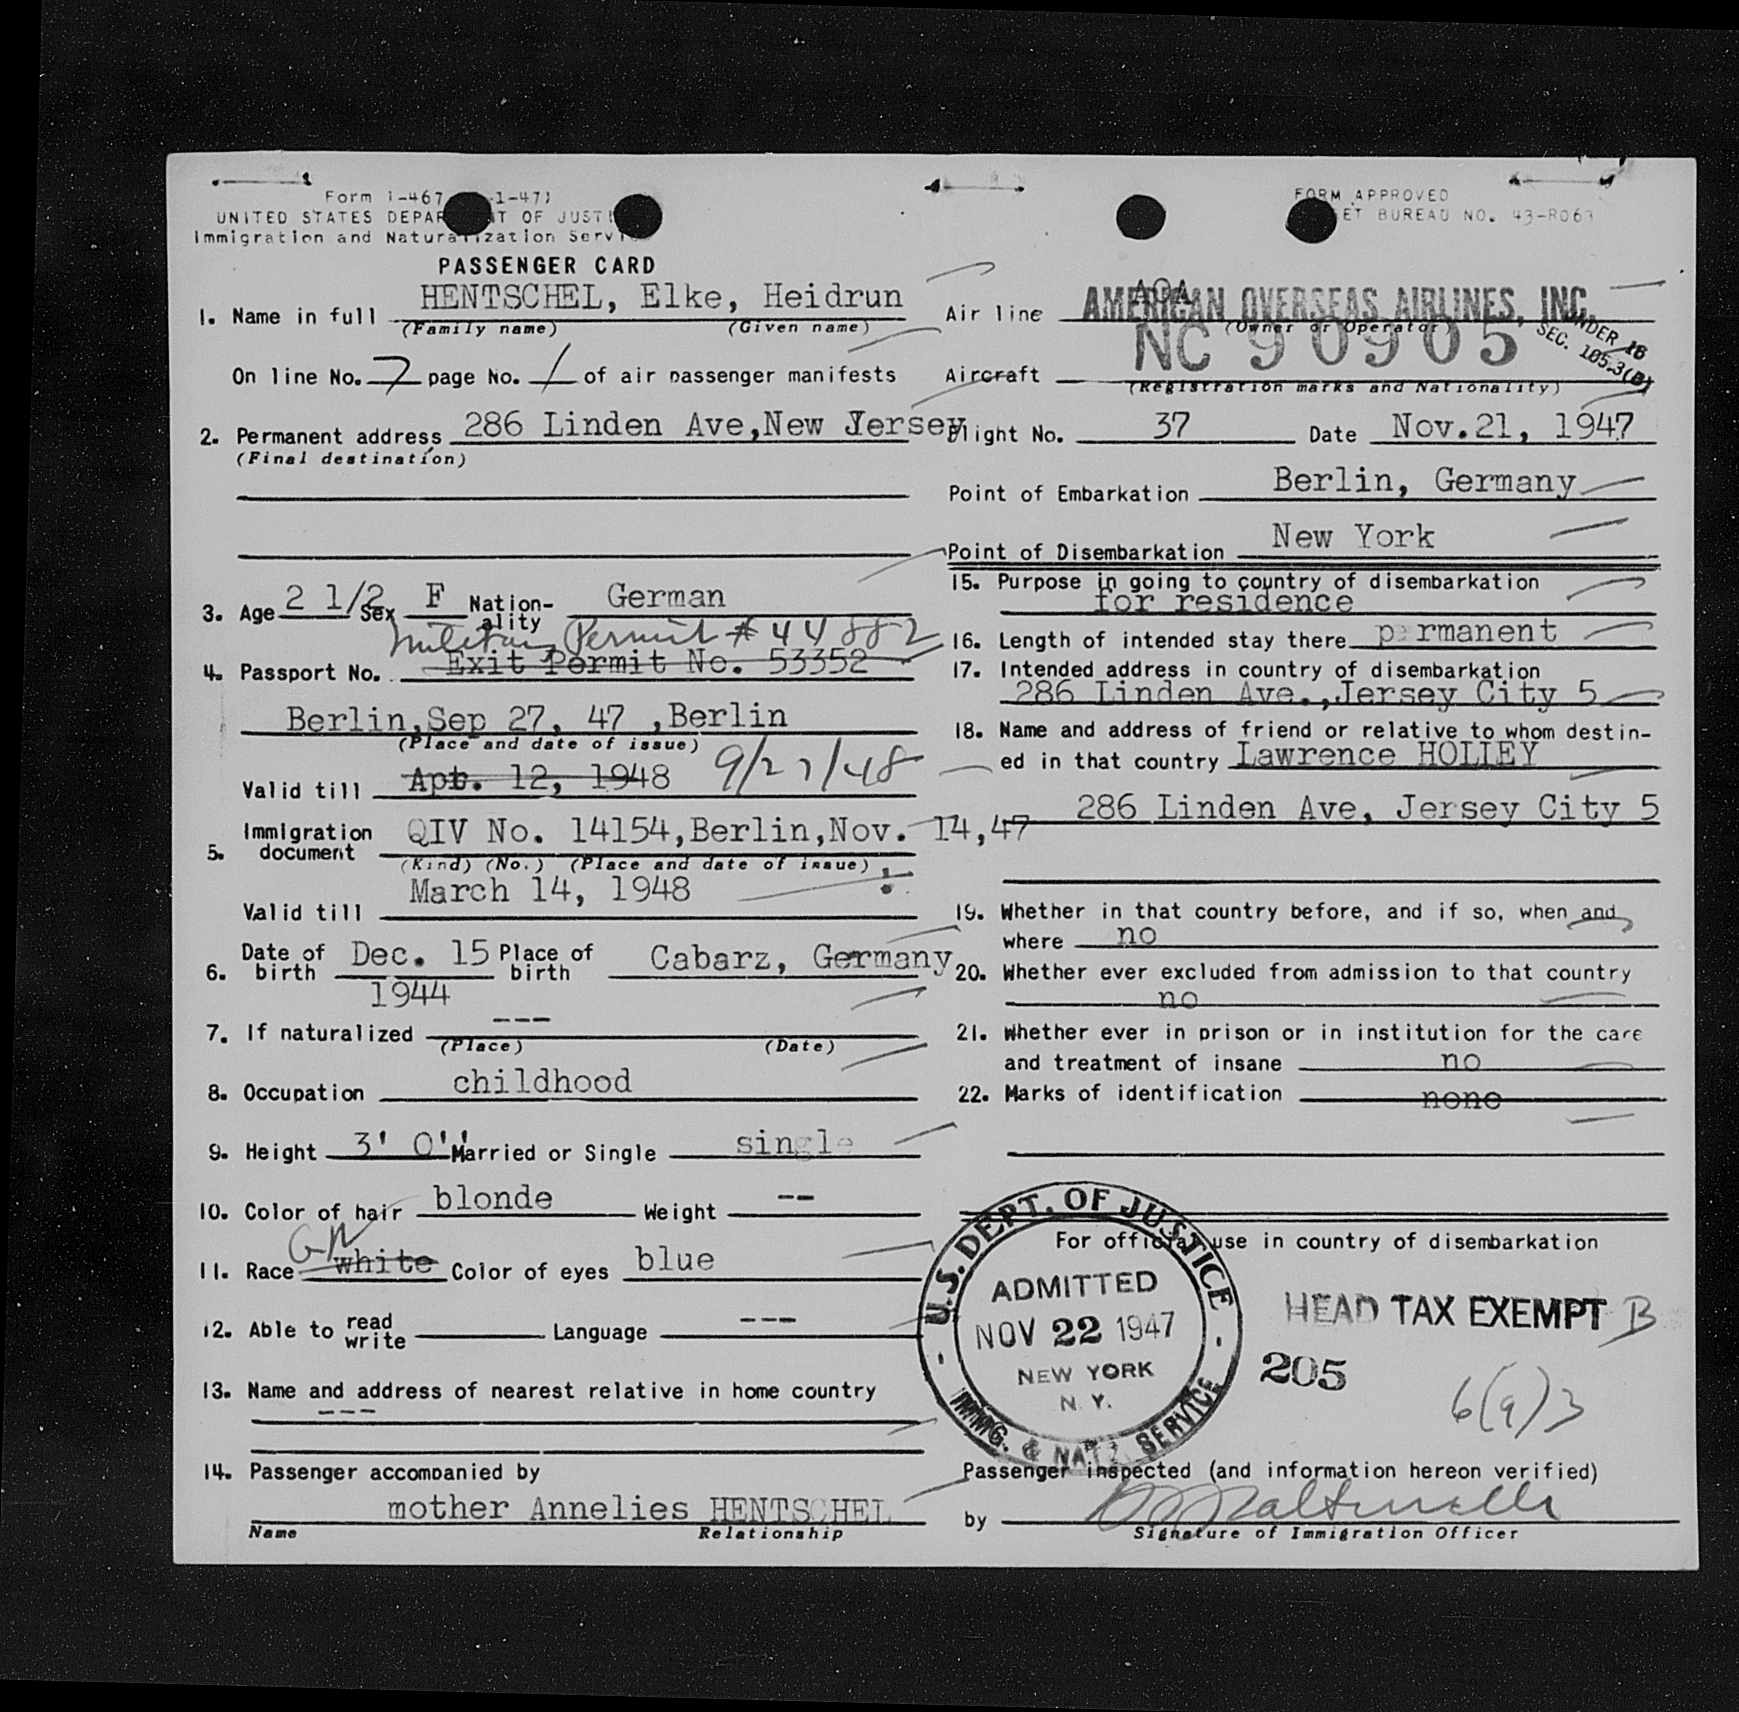 Form I-467 1-47)
UNITED STATES DEPAR T OF JUST
Immigration and Naturalization Servi
PASSENGER CARD
1. Name in full HENTSCHEL, Elke, Heidrun
(Family name) (Given name)
On line No. 7 page No. 1 of air passenger manifests
2. Permanent address 286 Linden Ave,New Jersey
(Final destination)
3. Age 2 1/2 Sex F Nation-ality German
Military Permit # 44882
4. Passport No. Exit Permit No. 53352
Berlin,Sep 27, 47 ,Berlin
(Place and date of issue)
Valid till Apt. 12, 1948 9/27/48
5. Immigration document QIV No. 14154,Berlin,Nov. 14,47
(Kind) (No.) (Place and date of issue)
March 14, 1948
Valid till
6. Date of birth Dec. 15 1944 Place of birth Cabarz, Germany
7. If naturalized ---
(Place) (Date)
8. Occupation childhood
9. Height 3' 0'' Married or Single single
10. Color of hair blonde Weight --
11. Race GN white Color of eyes blue
12. Able to read write Language ---
13. Name and address of nearest relative in home country
---
14. Passenger accompanied by
mother Annelies HENTSCHEL
Name Relationship
FORM APPROVED
ET BUREAU NO. 43-R063
AOA
Air line AMERICAN OVERSEAS AIRLINES, INC.
(Owner or Operator)
UNDER 16
SEC. 105.3(B)
Aircraft NC 90905
(Registration marks and Nationality)
Flight No. 37 Date Nov.21, 1947
Point of Embarkation Berlin, Germany
Point of Disembarkation New York
15. Purpose in going to country of disembarkation
for residence
16. Length of intended stay there p rmanent
17. Intended address in country of disembarkation
286 Linden Ave.,Jersey City 5
18. Name and address of friend or relative to whom destin-
ed in that country Lawrence HOLLEY
286 Linden Ave, Jersey City 5
19. Whether in that country before, and if so, when and
where no
20. Whether ever excluded from admission to that country
no
21. Whether ever in prison or in institution for the care
and treatment of insane no
22. Marks of identification none
For official use in country of disembarkation
U.S. DEPT. OF JUSTICE
ADMITTED
NOV 22 1947
NEW YORK
N. Y.
IMMG. & NATZ. SERVICE
HEAD TAX EXEMPT B
205
6(a)3
Passenger inspected (and information hereon verified)
by
Signature of Immigration Officer